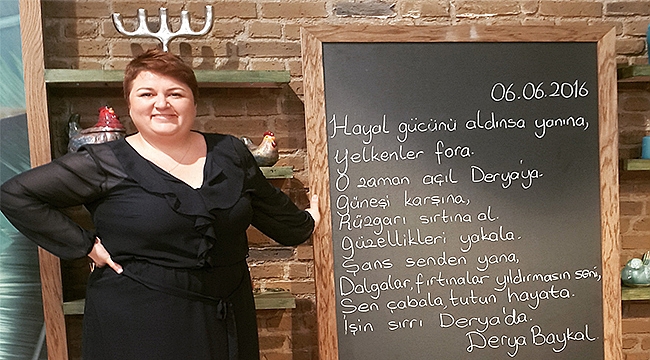 06.06.2016
Hayal gücünü aldınsa yanına,
Yelkenler fora.
O zaman açıl Derya'ya.
Güneşi karşına,
Rüzgarı sırtına al.
Güzellikleri yakala.
Şans senden yana,
Dalgalar, fırtınalar yıldırmasın seni,
Sen çabala, tutun hayata.
İşin sırrı Derya'da.
Derya Baykal.